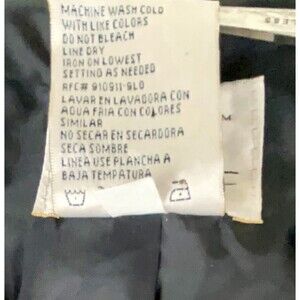 MACHINE WASH COLD
WITH LIKE COLORS
DO NOT BLEACH
LINE DRY
IRON ON LOWEST
SETTING AS NEEDED
RFC# 910911-9L0
LAVAR EN LAVADORA CON
AGUA FRIA CON COLORES
SIMILAR
NO SECAR EN SECADORA
SECA SOMBRE
LINEA USE PLANCHA A
BAJA TEMPATURA
M